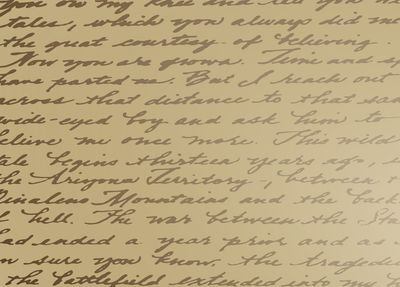 you on my knee and tell you
tales, which you always did me
the great courtesy of believing.
Now you are grown. Time and
have parted us. But I reach out
across that distance to that
wide-eyed boy and ask him to
elieve me once more. This wild
tale begins thirteen years ago,
the Arizona Territory, between
Pinaleno Mountains and the back
f hell. The war between the Sta
ad ended a year prior and as
n sure you know, the tragedie
the battlefield extended into my